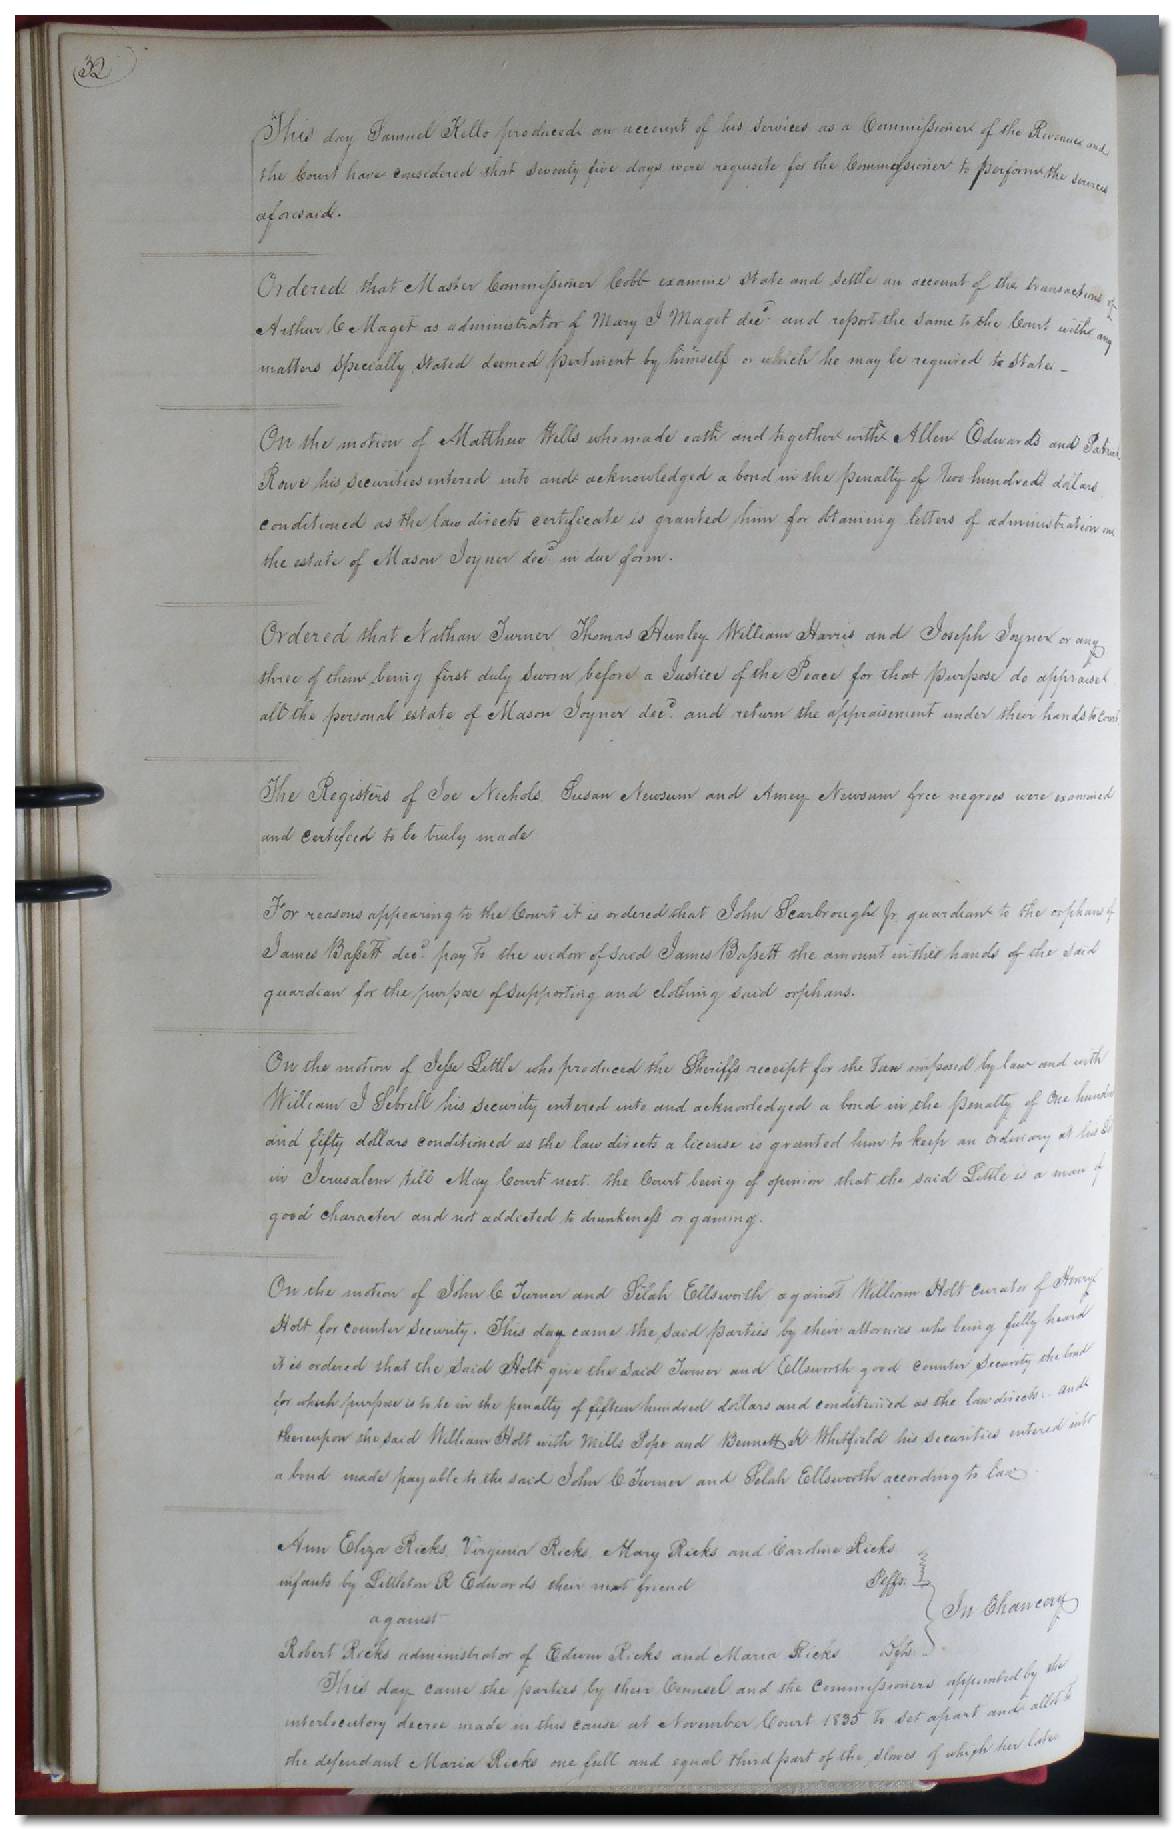 32
This day Samuel Kello produced an account of his services as a Commissioner of the Revenue and
the Court have considered that seventy five days were requisite for the Commissioner to perform the services
aforesaid.
Ordered that Master Commissioner Cobb examine state and settle an account of the transactions of
Arthur C Maget as administrator of Mary I Maget decd. and report the same to the Court with any
matters specially stated deemed pertinent by himself or which he may be required to state
On the motion of Matthew Wells who made oath and together with Allen Edwards and Patrick
Rowe his securities entered into and acknowledged a bond in the penalty of two hundred dollars
conditioned as the law directs certificate is granted him for obtaining letters of administration on
the estate of Mason Joyner decd. in due form.
Ordered that Nathan Turner Thomas Hunley William Harris and Joseph Joyner or any
three of them being first duly sworn before a Justice of the Peace for that purpose do appraise
all the personal estate of Mason Joyner decd. and return the appraisement under their hands to court
The Registers of Joe Nichols, Susan Newsum and Amey Newsum free negroes were examined
and certified to be truly made
For reasons appearing to the Court it is ordered that John Scarbrough Jr. guardian to the orphans of
James Bassett decd. pay to the widow of said James Bassett the amount in his hands of the said
guardian for the purpose of supporting and clothing said orphans.
On the motion of Jesse Little who produced the Sheriffs receipt for the Tax imposed by law and with
William I Sebrell his security entered into and acknowledged a bond in the penalty of One hundred
and fifty dollars conditioned as the law directs a license is granted him to keep an ordinary at his
in Jerusalem till May Court next. the Court being of opinion that the said Little is a man of
good character and not addicted to drunkeness or gaming.
On the motion of John C Turner and Selah Ellsworth against William Holt curator of Henry
Holt for counter security. This day came the said parties by their attornies who being fully heard
it is ordered that the said Holt give the said Turner and Ellsworth good counter security the bond
for which purpose is to be in the penalty of fifteen hundred dollars and conditioned as the law directs. and
thereupon the said William Holt with Mills Pope and Bennett K Whitfield his securities entered into
a bond made payable to the said John C Turner and Selah Ellsworth according to law
Ann Eliza Ricks, Virginia Ricks, Mary Ricks and Caroline Ricks
infants by Littleton R Edwards their next friend Peffs.
against In Chancery
Robert Ricks administrator of Edwin Ricks and Maria Ricks Defts.
This day came the parties by their Counsel and the commissioners appointed by the
interlocutory decree made in this cause at November Court 1835 to set apart and allot to
the defendant Maria Ricks one full and equal third part of the slaves of which her late